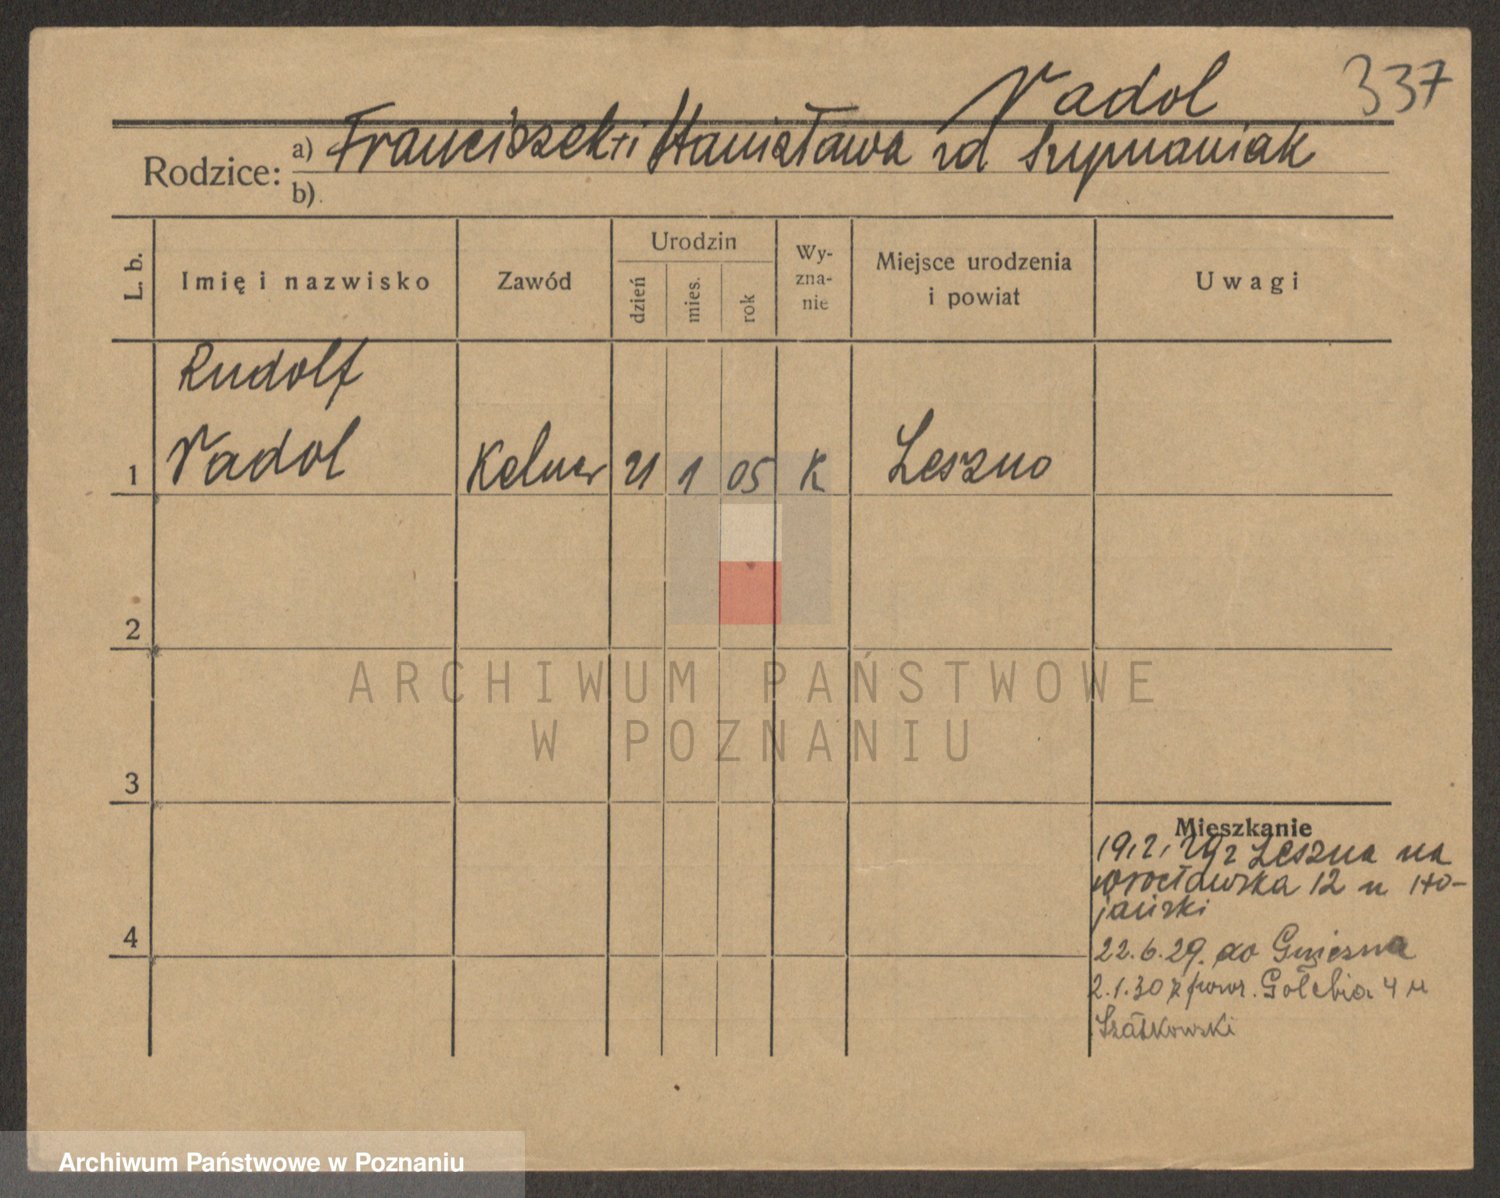 337
Nadol
Rodzice: a) Franciszek i Stanisława zd Szymaniak
b)
L. b.
Imię i nazwisko
Zawód
Urodzin
dzień
mies.
rok
Wy-
zna-
nie
Miejsce urodzenia
i powiat
Uwagi
Rudolf
1 Nadol Kelner 21 1 05 K Leszno
2
3
4
Mieszkanie
19.2.29 z Leszna na
Wrocławska 12 u
22.6.29. do Gniezna
2.1.30 z powr. Gołębia 4 u
Szałkowski
ARCHIWUM PAŃSTWOWE
W POZNANIU
Archiwum Państwowe w Poznaniu